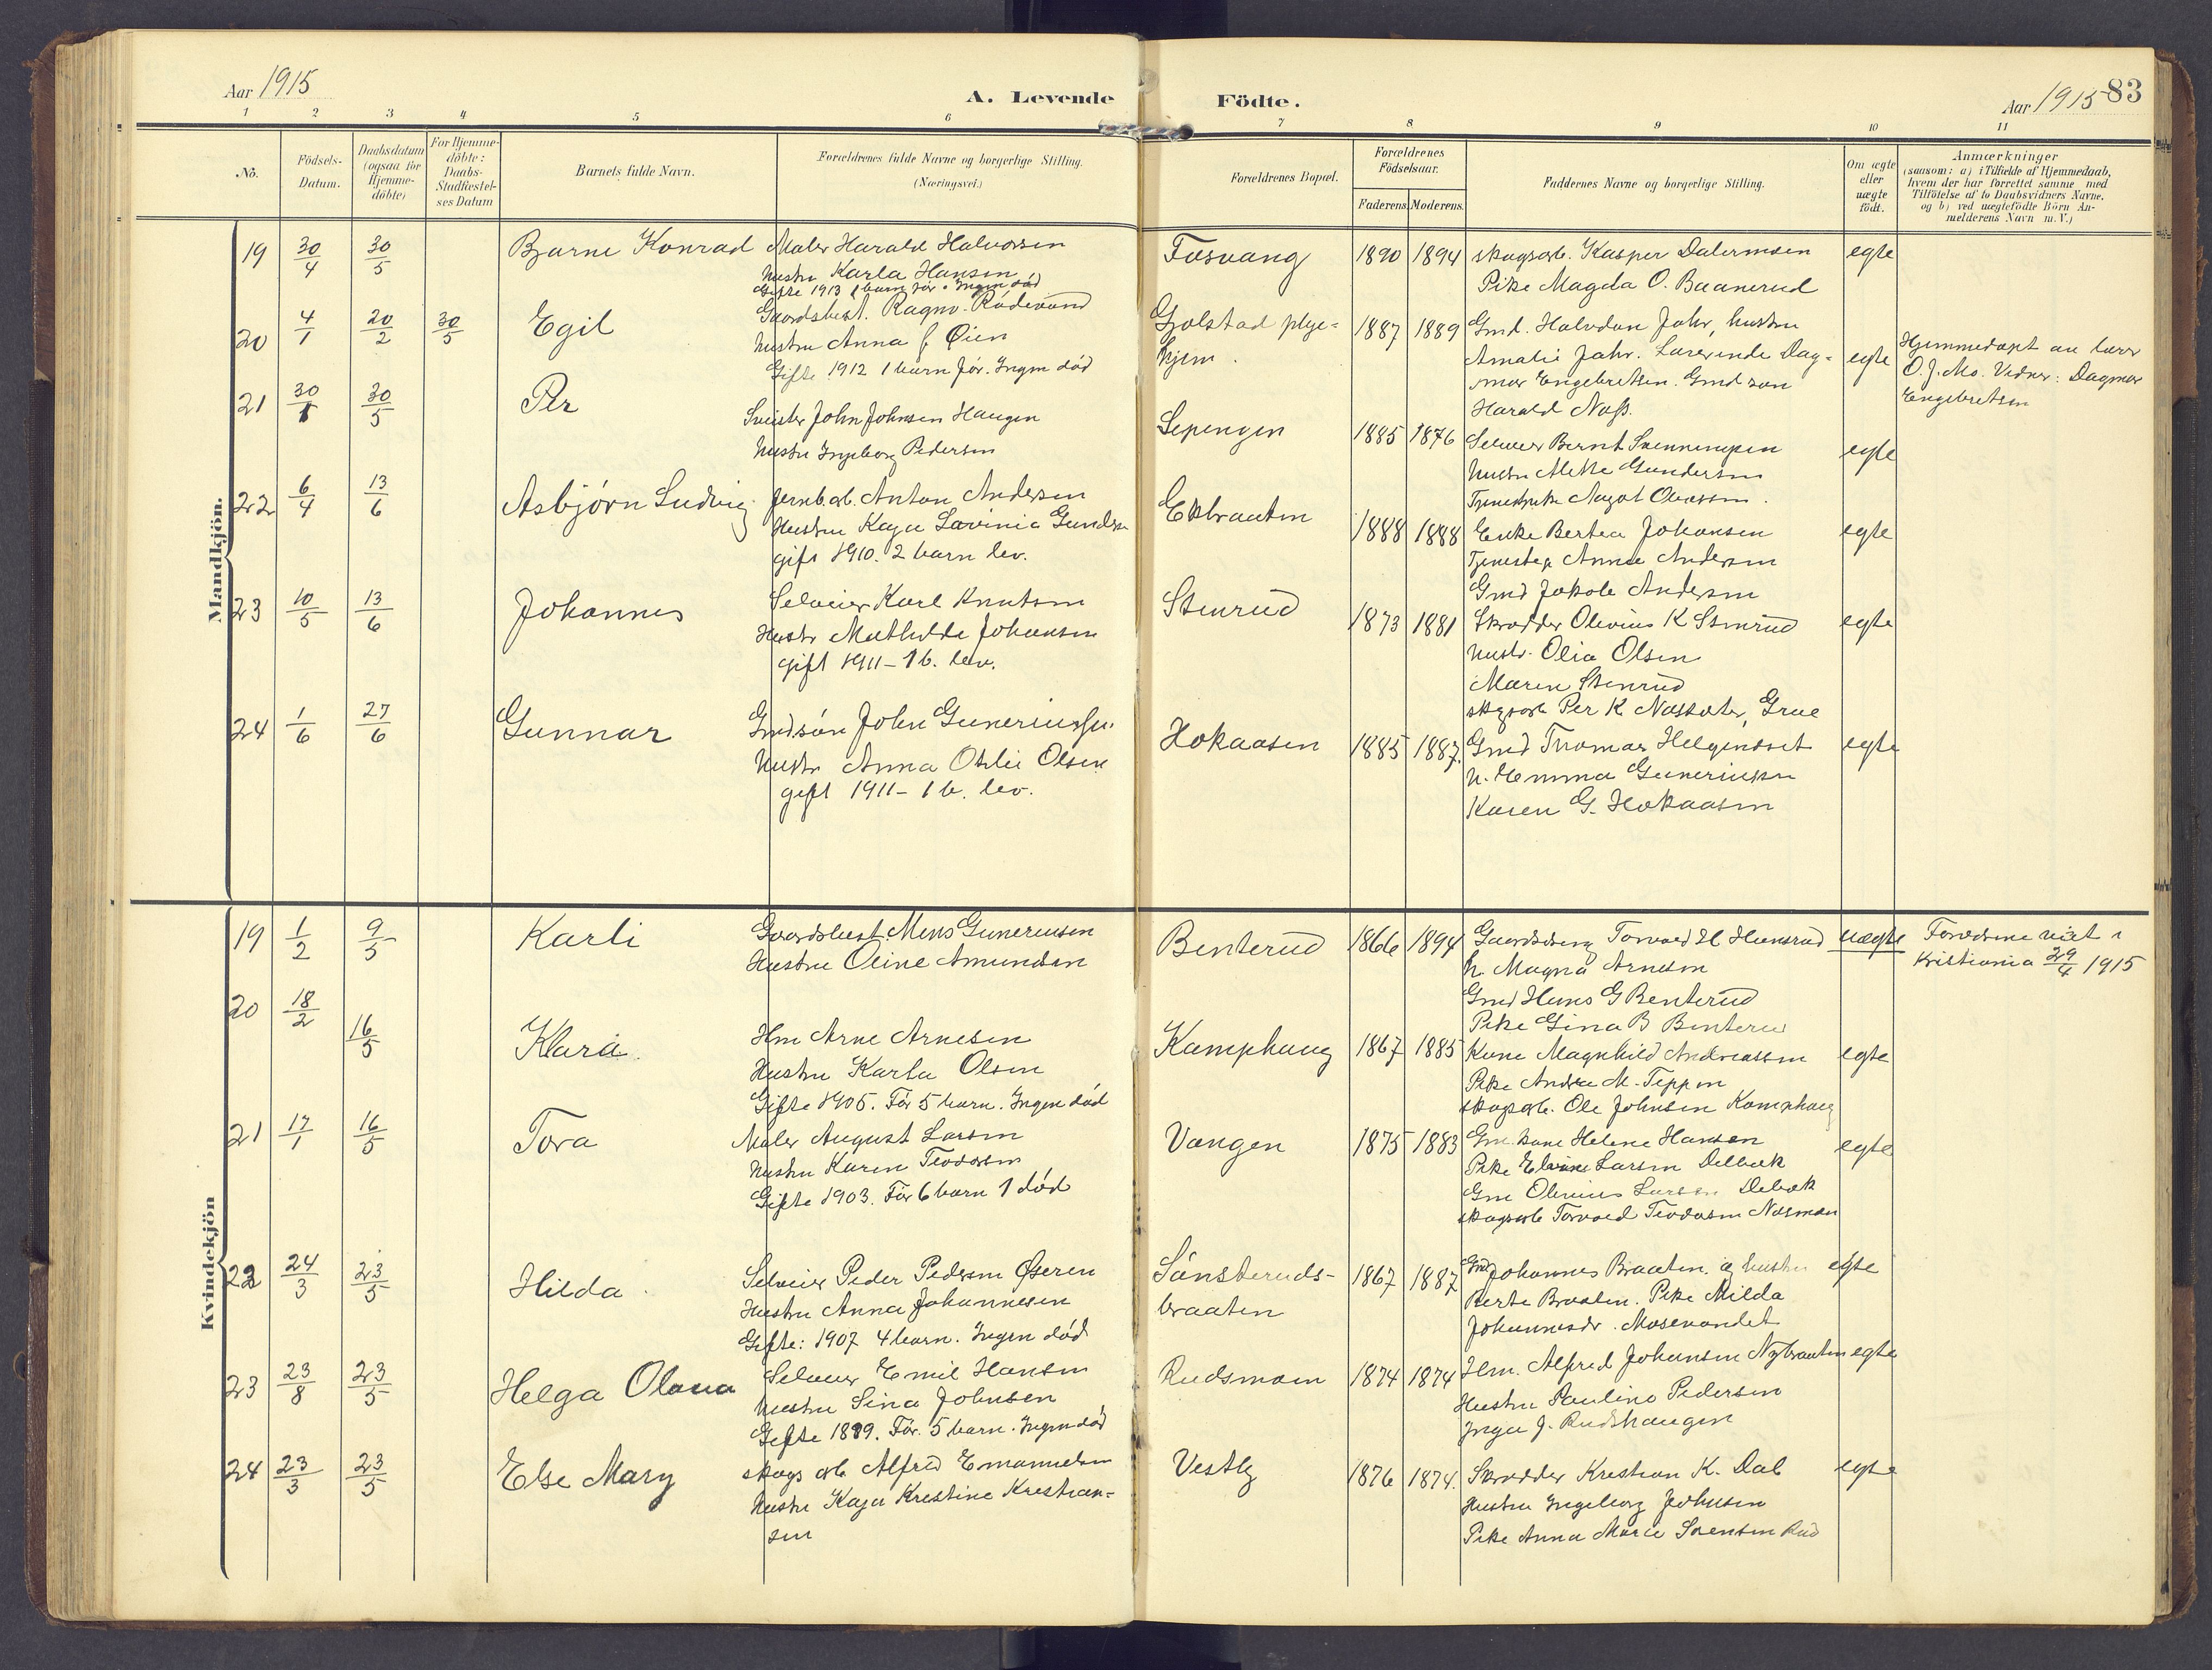 Aar 1915
A. Levende Födte.
Aar 1915 83
1 2 3 4 5 6 7 8 9 10 11
No.
Födsels-Datum.
Daabsdatum (ogsaa for Hjemme-döbte)
For Hjemme-döbte: Daabs-Stadfæstel-ses Datum
Barnets fulde Navn.
Forældrenes fulde Navne og borgerlige Stilling. (Næringsvei.)
Forældrenes Bopæl.
Forældrenes Födselsaar.
Faderens. Moderens.
Faddernes Navne og borgerlige Stilling.
Om ægte eller uægte födt.
Anmærkninger
(saasom: a) i Tilfælde af Hjemmedaab,
hvem der har forrettet samme med
Tilföielse af to Daabsvidners Navne,
og b) ved uægtefödte Börn An-
melderens Navn m. V.)
Mandkjön.
19 30/4 30/5 Bjarne Konrad
Maler Harald Halvorsen
hustru Karla Hansen
Gifte 1913 1 barn før. Ingen død
1890 1894
skogsarb. Kasper
Pike Magda O. Baanerud
egte
20 4/1 20/2 30/5 Egil
Gaardsbest. Ragnv.
hustru Anna Øien
Gifte 1912 1 barn før. Ingen død
Gjolstad pleie-
hjem.
1887 1889
Gmd. Halvdan Jahr, hustru
Amalie Jahr. Lærerinde Dag-
mar Engebretsen. Gmd søn
Harald
egte
Hjemmedøpt av lærer
O. J. Mo. Vidner: Dagmar
Engebretsen
21 30/1 30/5 Per
John Johnsen Haugen
hustru Ingeborg Pedersen
1885 1876
Selveier Bernt
hustru Mette Gundersen
egte
22 6/4 13/6 Asbjørn Ludvig
Jernb.arb. Anton Andersen
Hustru Kaja Lovinia
gift 1910. 2 barn lev.
Ekbraaten
1888 1888
Enke Bertea Johansen
Annie Andersen
Gmd Jakob Andersen
egte
23 10/5 13/6 Johannes
Selveier Karl Knutsen
Hustr Mathilde Johansen
gift 1911 – 1 b. lev.
Stenrud
1873 1881
Skrædder Olevius K Stenrud
hustr. Olia Olsen
Maren Stenrud
skogsarb Per K , Grue
egte
24 1/6 27/6 Gunnar
Gmdsøn John Gunneriussen
hustr Anna Otelie Olsen
gift 1911 – 1 b. lev.
Hokaasen
1885 1887.
Gmd Thomas Helgeneset
h. Emma Gunneriussen
Karen G. Hokaasen
egte
Kvindekjön
19 1/2 9/5 Karli
Gaardsbest. Mons Gunneriusen
Hustru Oline Amundsen
Benterud
1866 1894
h. Magna Arnesen
Gmd Hans G Benterud
Pike Gina B Benterud
uægte
Forældrene viet i
Kristiania 29/4 1915
20 18/2 16/5 Klara.
Hm Arne Arnesen
Hustru Karla Olsen
Gifte 1905. Før 5 barn. Ingen død
Kamphaug
1867 1885
Kone Magnhild Andreassen
Pike Andrea M. Teppen
skogsarb. Ole Johnsen Kamphaug
egte
21 17/1 16/5 Tora
Maler August Larsen
hustru Karen Teodorsen
Gifte 1903. Før 6 barn 1 død
Vangen
1875 1883
Gm. kone Helene Hansen
Pike Larsen Delbæk
Gm Olevius Larsen Delbæk
skogsarb Torvald Teodorsen
egte
22 24/3 23/5 Hilda.
Selveier Peder Pedersen
Hustru Anna Johannesen
Gifte: 1907 4 barn. Ingen død
Sönsteruds-
braaten
1867 1887
Gmd Johannes Braaten. og hustru
Berte Braaten. Pike Milda
Johannesdr. Mosevandet
egte
23 23/8 23/5 Helga Olava
Selveier Emil Hansen
hustru Lina Johnsen
Gifte 1899. Før. 5 barn. Ingen død
Rudsmoen
1874 1874
Hm. Alfred Johansen Nybraaten
Hustru Pauline Pedersen
Inga J. Rudshaugen
egte
24 23/3 23/5 Else Mary
skogs arb Alfred Emanuelsen
hustru Kaja Kristine Kristian-
sen
Vestby
1876 1874.
Skrædder Krestian K. Dal
Hustru Ingeborg Johnsen
Pike Anna Marie Sørensen Rud
egte